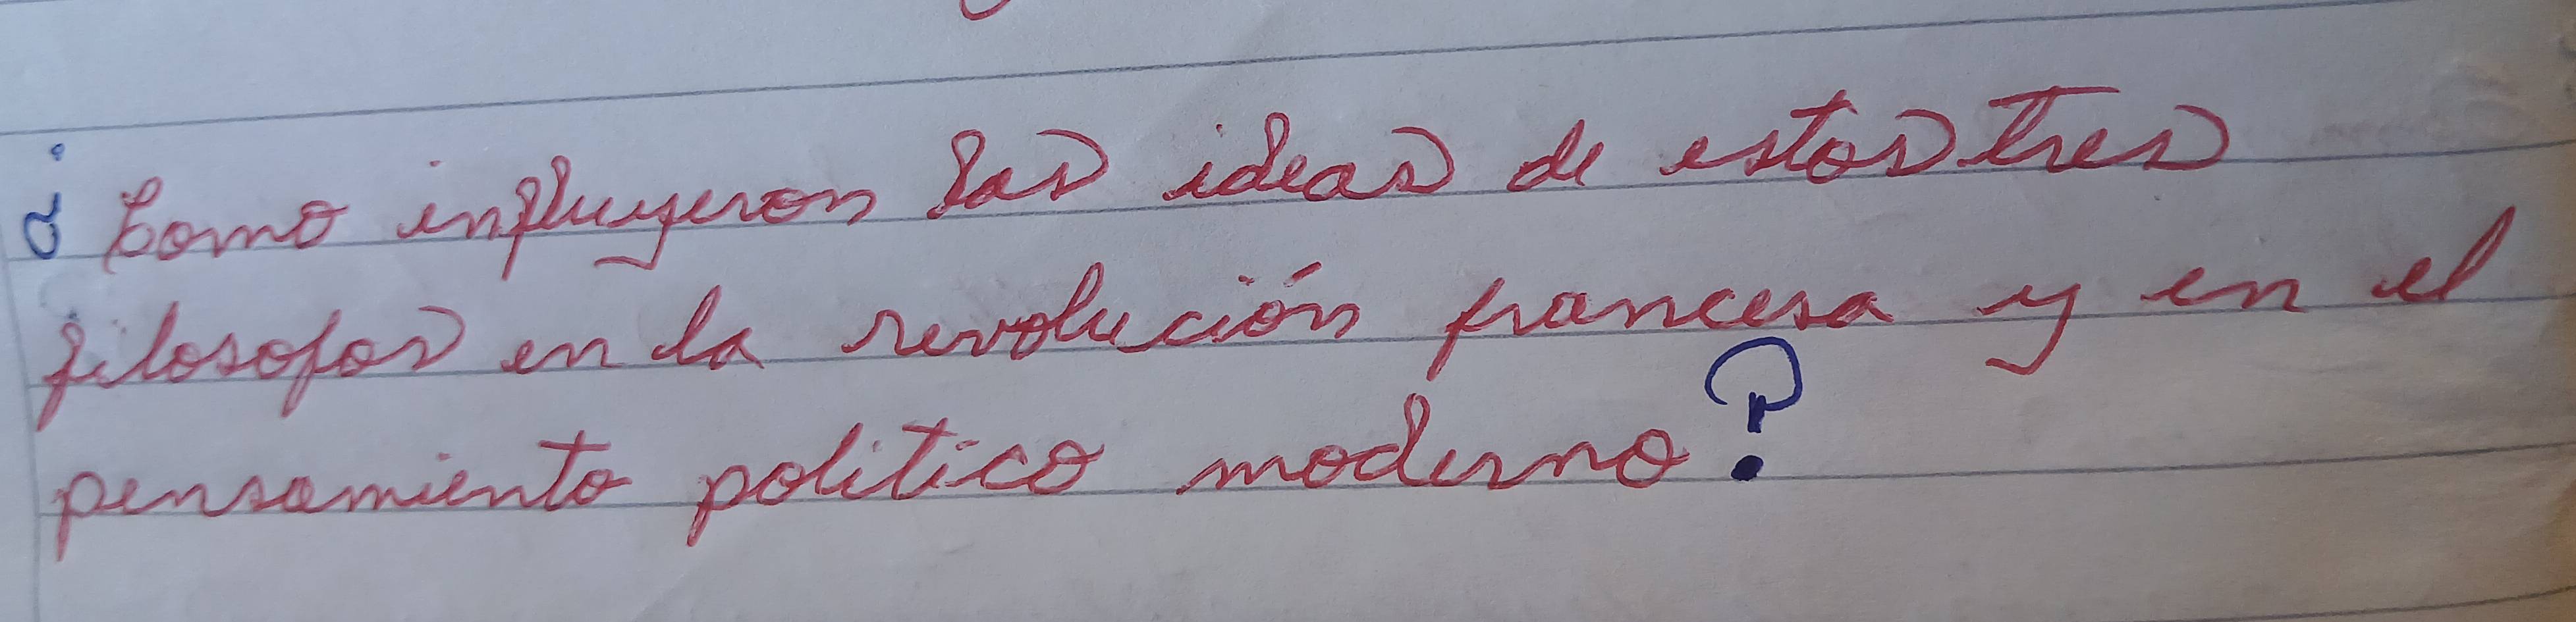 ¿Como influyeron las ideas de estos tres
filosofos en la revolución francesa y en el
pensamiento politico moderno?